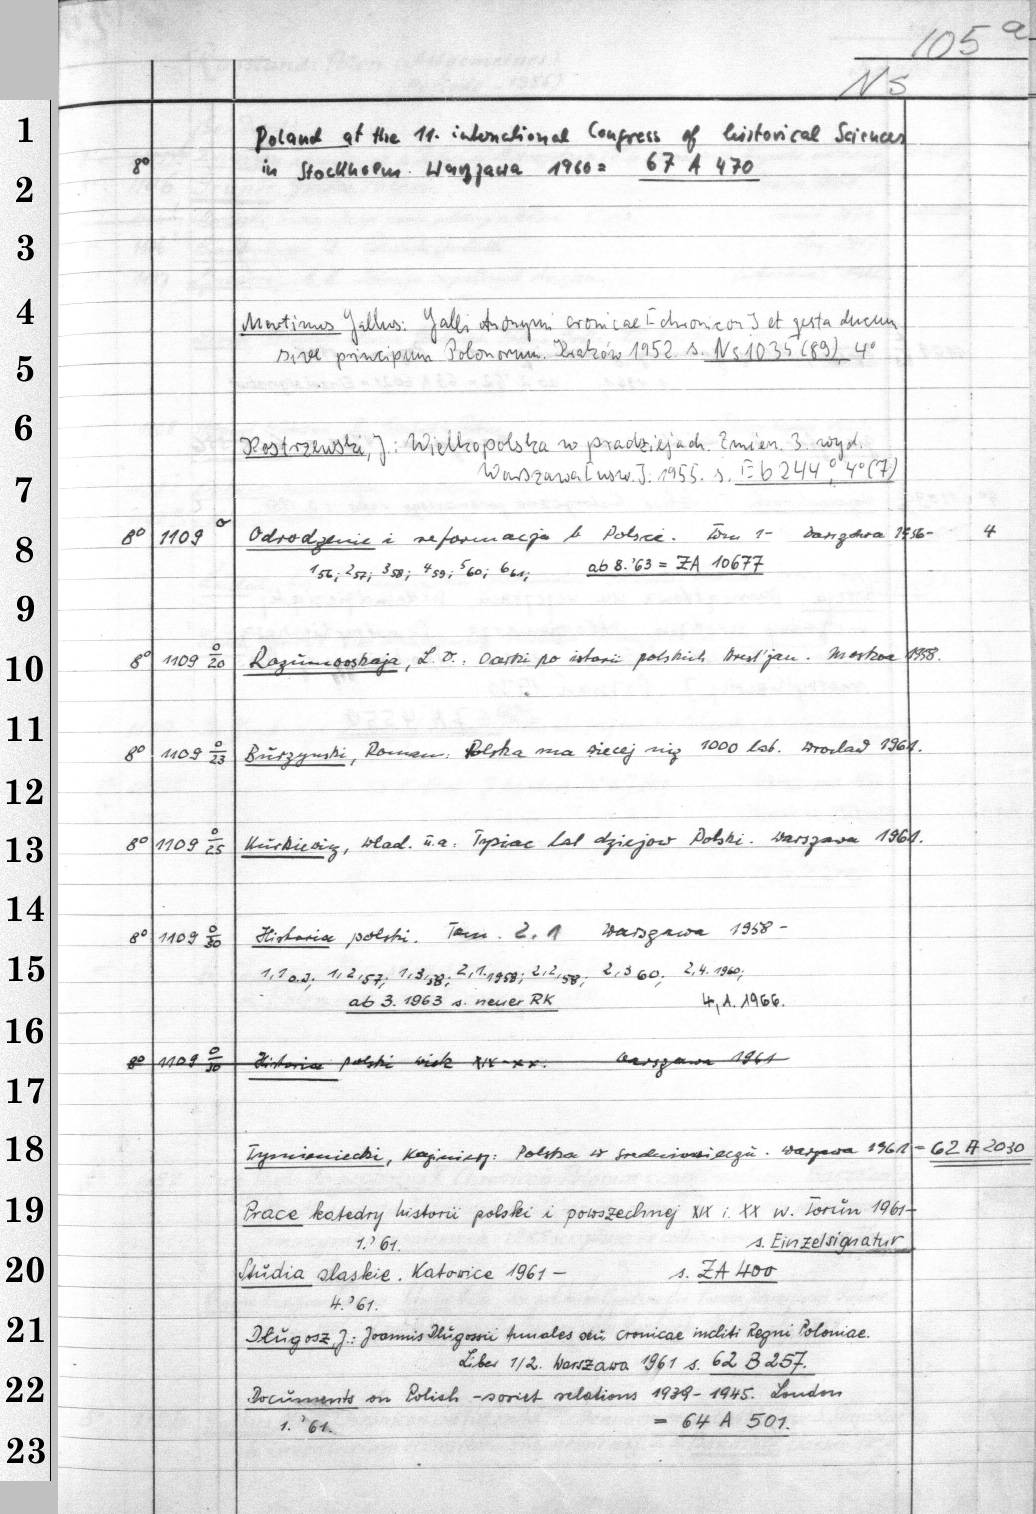 105 a
Ns
1
Poland at the 11. international Congress of historical Sciences
8° in Stockholm. Warszawa 1960 = 67 A 470
2
3
4
Martinus Gallus: Galli Anonymi cronicae [chronicon] et gesta ducum
sive principum Polonorum. Kraków 1952. s. Ns 1035 (89), 4°
5
6
Kostrzewski, J.: Wielkopolska w pradziejach. Zmien. 3. wyd.
Warszawa [usw.]. 1955. s. Eb 244°, 4° (7)
7
8° 1109 o Odrodzenie i reformacja w Polsce. Tom 1- Warszawa 1956- 4
8
1 56; 2 57; 3 58; 4 59; 5 60; 6 61; ab 8.'63 = ZA 10677
9
10
8° 1109 o/20 Razumovskaja, L. V.: Očerki po istorii polskich krest'jan. Moskva 1958.
11
8° 1109 o/23 Buszynski, Roman: Polska ma wiecej niz 1000 lat. Wroclaw 1961.
12
13
8° 1109 o/25 Kurkiewicz, Wlad. u.a.: Tysiac lat dziejow Polski. Warszawa 1961.
14
8° 1109 o/30 Historia polski. Tom. 2.1 Warszawa 1958-
15
1,1 o.J; 1,2,57; 1,3,58; 2,1.1958; 2,2,58; 2,3 60; 2,4. 1960;
ab 3. 1963 s. neuer RK 4,1. 1966.
16
8° 1109 o/30 Historia polski wiek XIX-XX. Warszawa 1961
17
18
Tymieniecki, Kazimierz: Polska w sredniowieczu. Warszawa 1961 = 62 A 2030
19
Prace katedry historii polski i powszechnej XIX i XX w. Toruń 1961-
1.'61. s. Einzelsignatur
20
Studia slaskie. Katowice 1961- s. ZA 400
4.'61.
21
Długosz, J.: Joannis Długossii Annales seu cronicae incliti Regni Poloniae.
Liber 1/2. Warszawa 1961 s. 62 B 257.
22
Documents on Polish-soviet relations 1939-1945. London
1.'61. = 64 A 501.
23